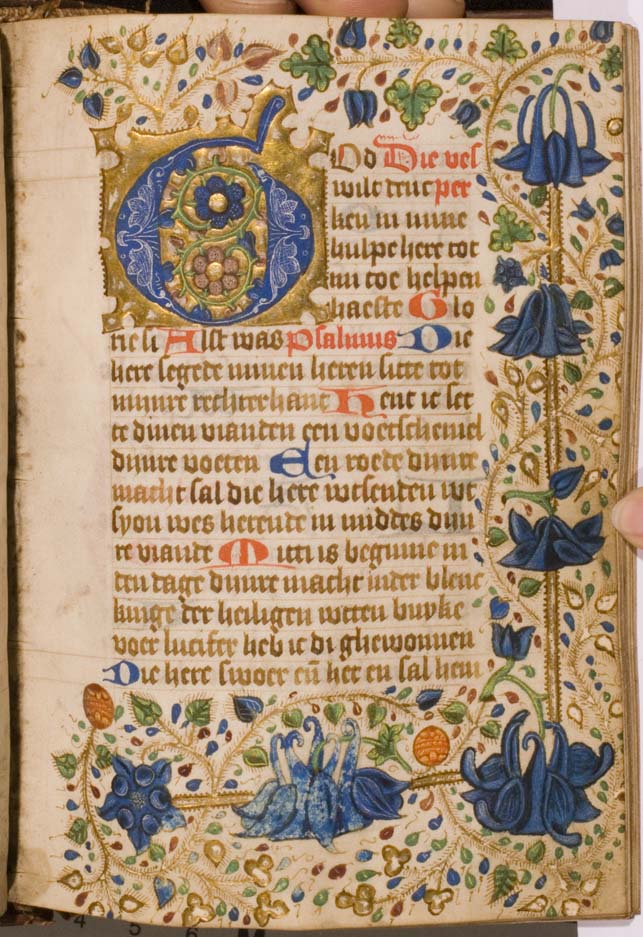 God Die ves
wilt denc per
ken in mine
hulpe here tot
mi toe helpen
haeste Glo
rie li Alst was Psalmus Die
here segede minen heren sitte tot
minre rechterhant Hent ic set
te dinen vianden een voetschemel
dijnre voeten Een roede dijnre
macht sal die here wtsenden wt
syon wes herende in middes dijn
re viande Mitti is beginne in
den dage dijnre macht inder blenc
kinge der heiligen wtten buyke
voer lucifer heb ic di ghewonnen
Die here swoer eñ het en sal hem
4 5 6